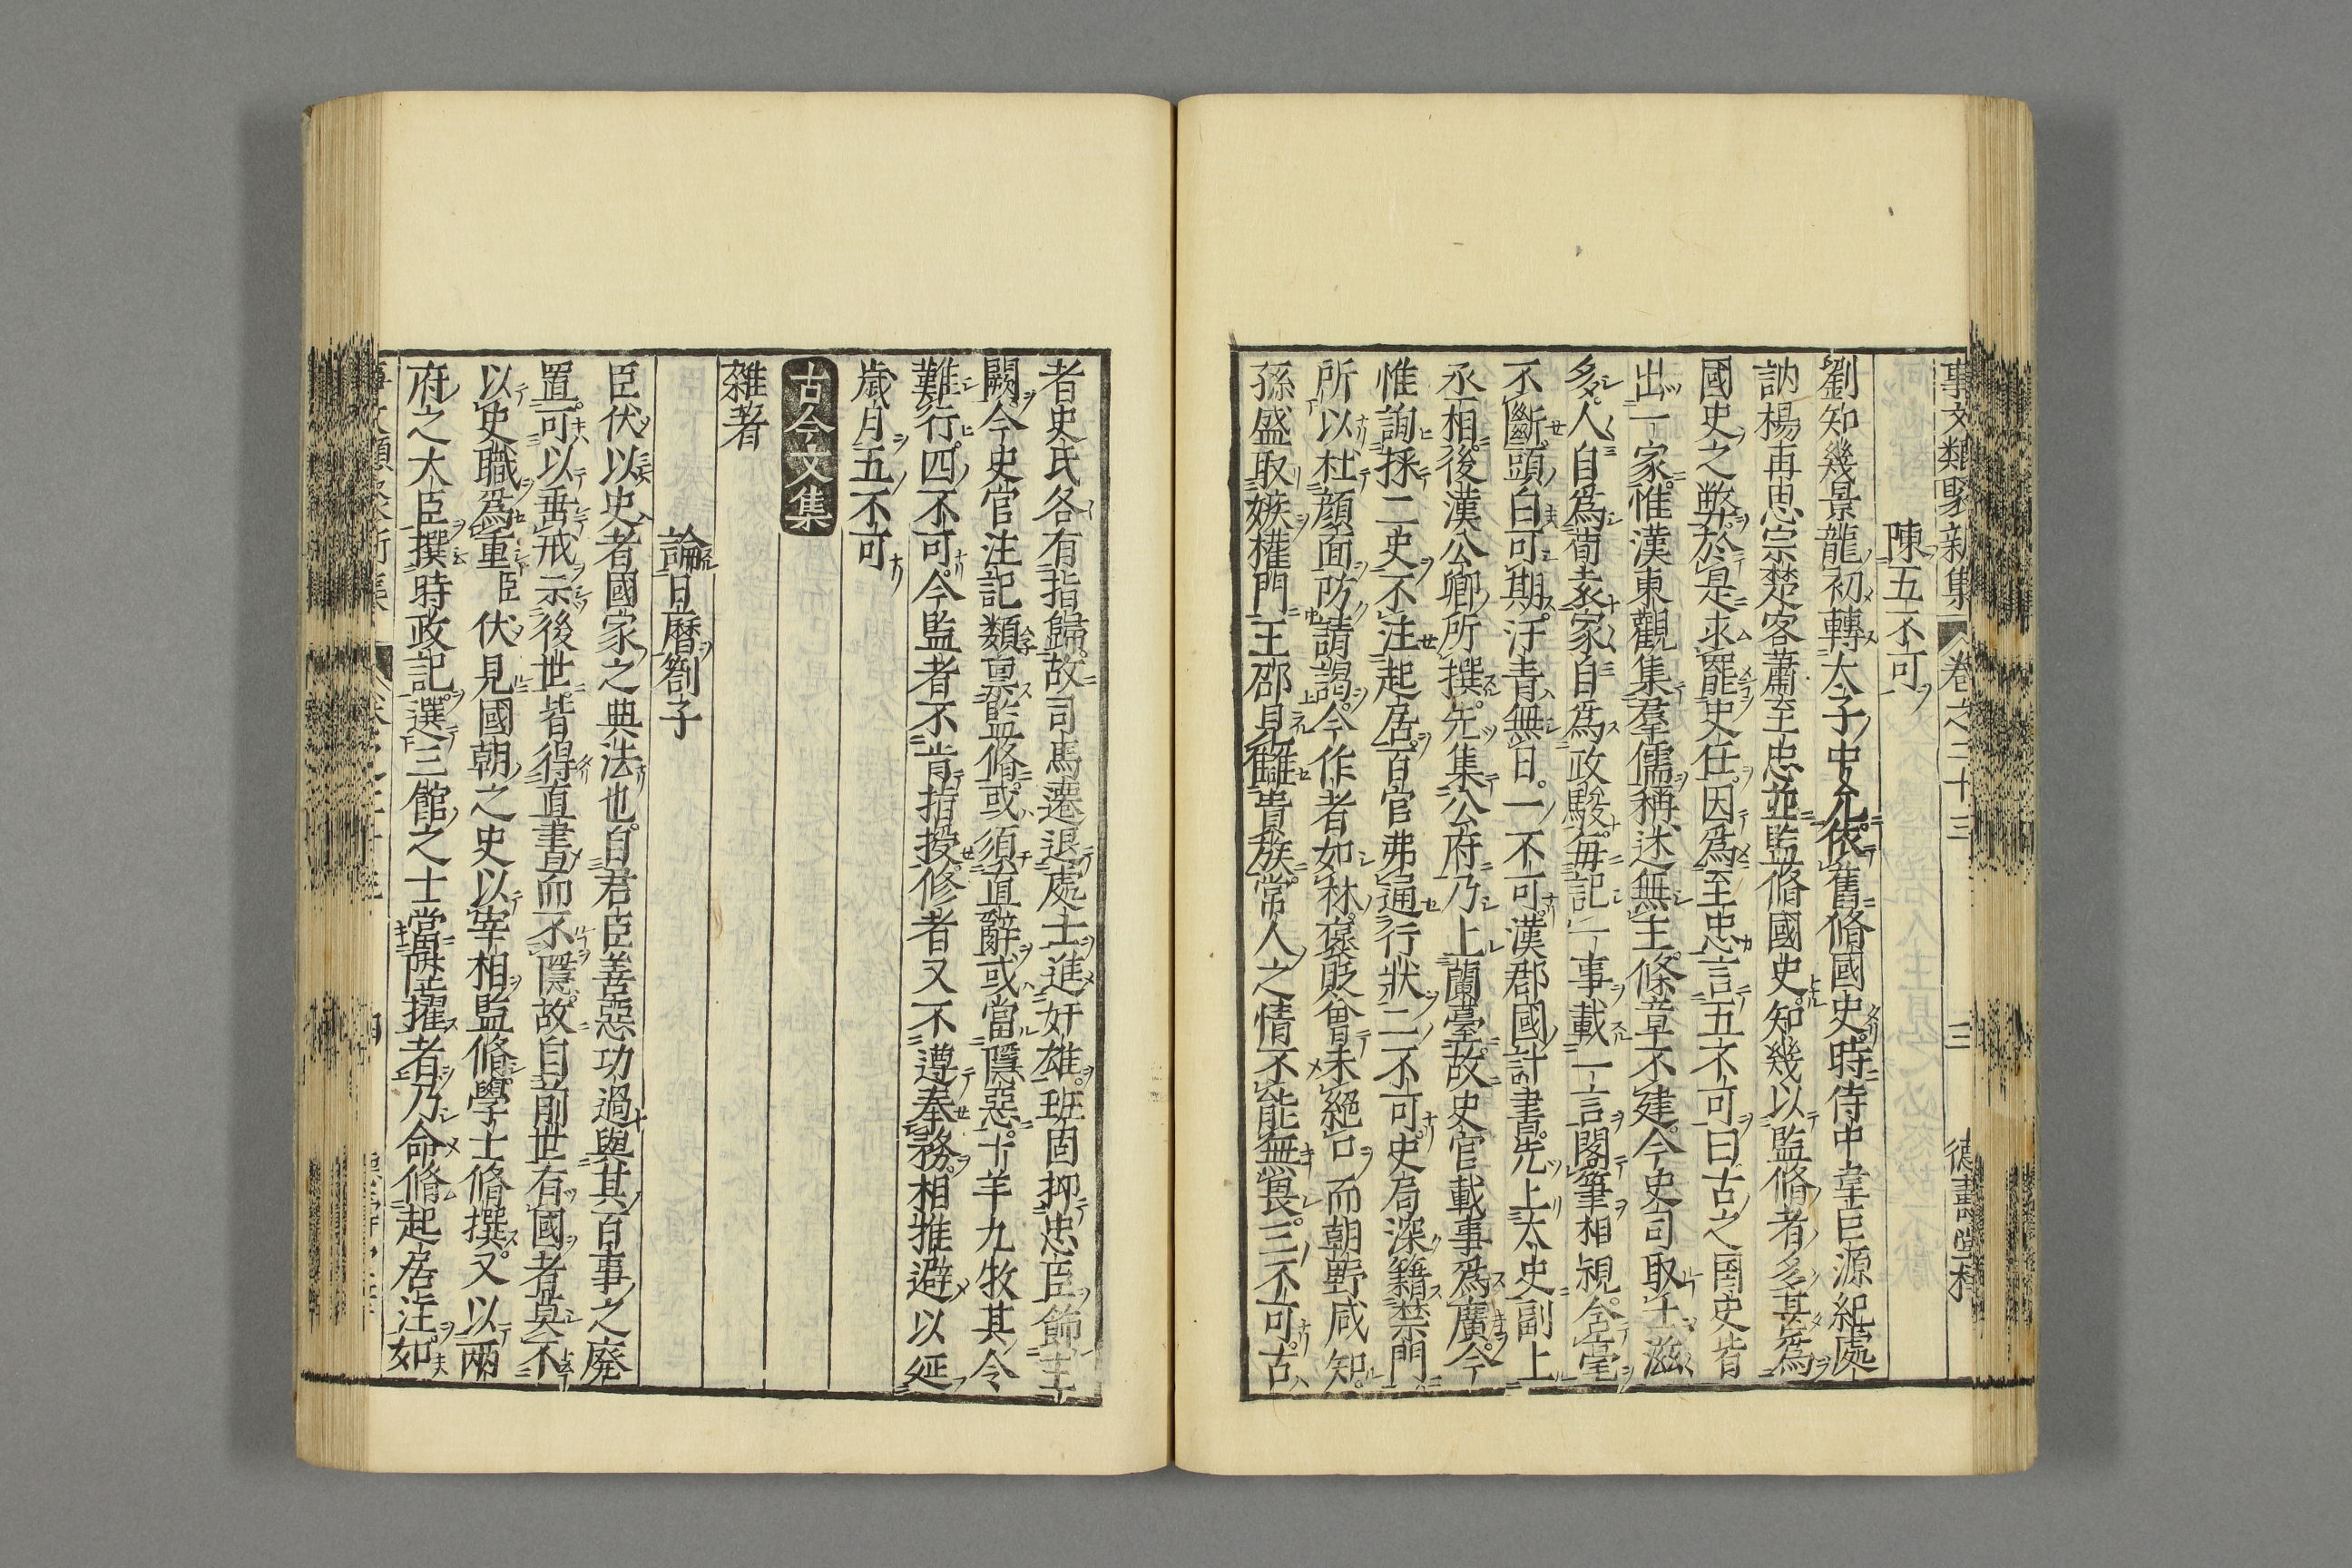 事文類聚新集 卷之三十三 三 德壽堂梓
陳五不可
劉知幾景龍初轉太子中允依舊脩國史時侍中韋巨源紀處
訥楊再思宗楚客蕭至忠並監脩國史知幾以監脩者多甚為
國史之弊於是求罷史任因為至忠言五不可曰古之國史皆
出一家惟漢東觀集羣儒稱述無主條章不建今史司取士滋
多人自為荀袁家自為政駿每記一事載一言閣筆相視含毫
不斷頭白可期汗青無日一不可漢郡國計書先上太史副上
丞相後漢公卿所撰先集公府乃上蘭臺故史官載事為廣今
惟詢採二史不注起居百官弗通行狀二不可史局深籍禁門
所以杜顏面防請謁今作者如林襃貶曾未絕口而朝野咸知
孫盛取嫉權門王邵見讎貴族常人之情不能無畏三不可古
者史氏各有指歸故司馬遷退處士進奸雄班固抑忠臣飾主
闕今史官注記類禀監脩或須直辭或當隱惡十羊九牧其令
難行四不可今監者不肯指授修者又不遵奉務相推避以延
歲月五不可
古今文集
雜著
論日曆劄子
臣伏以史者國家之典法也自君臣善惡功過與其百事之廢
置可以垂戒示後世皆得直書而不隱故自前世有國者莫不
以史職為重臣伏見國朝之史以宰相監脩學士脩撰又以兩
府之大臣撰時政記選三館之士當陞擢者乃命脩起居注如